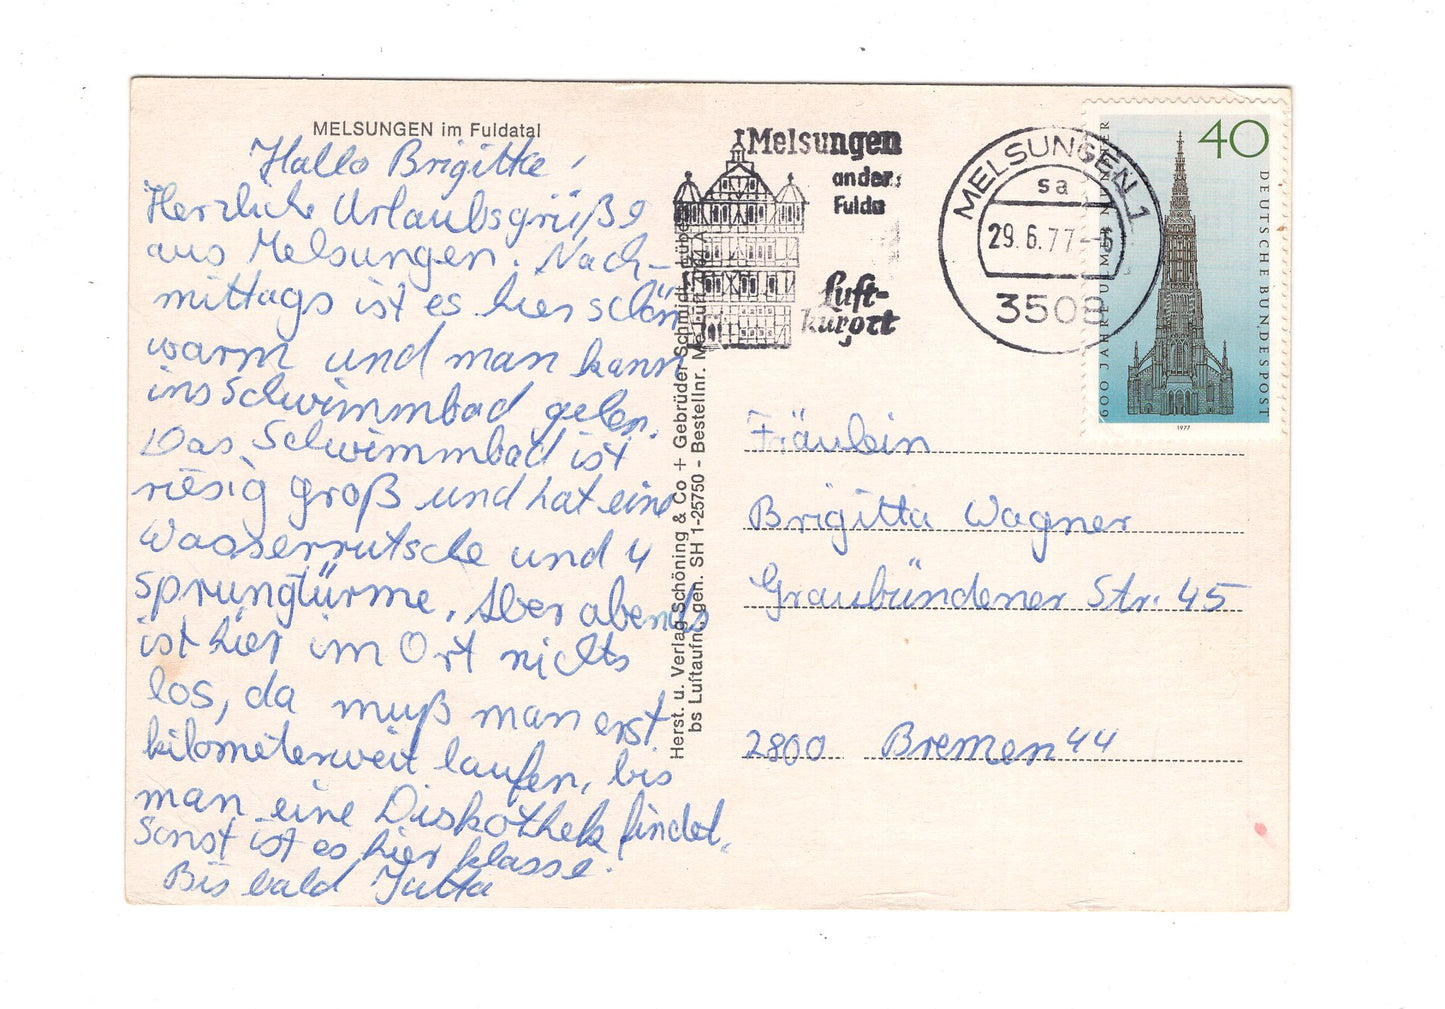 MELSUNGEN im Fuldatal
Hallo Brigitte,
Herzliche Urlaubsgrüße
aus Melsungen. Nach-
mittags ist es hier schön
warm und man kann
ins Schwimmbad gehen.
Das Schwimmbad ist
riesig groß und hat eine
Wasserrutsche und 4
Sprungtürme. Aber abends
ist hier im Ort nichts
los, da muß man erst
kilometerweit laufen, bis
man eine Diskothek findet.
Sonst ist es hier klasse.
Bis bald Jutta
Herst. u. Verlag Schöning & Co + Gebrüder Schmidt, Lübeck
bs Luftaufn., gen. SH 1-25750 - Bestellnr.
Melsungen
an der
Fulda
Luft-
kurort
MELSUNGEN 1
sa
29.6.77-6
3508
40
600 JAHRE ULMER MÜNSTER
DEUTSCHE BUNDESPOST
1977
Fräulein
Brigitta Wagner
Graubündener Str. 45
2800 Bremen 44